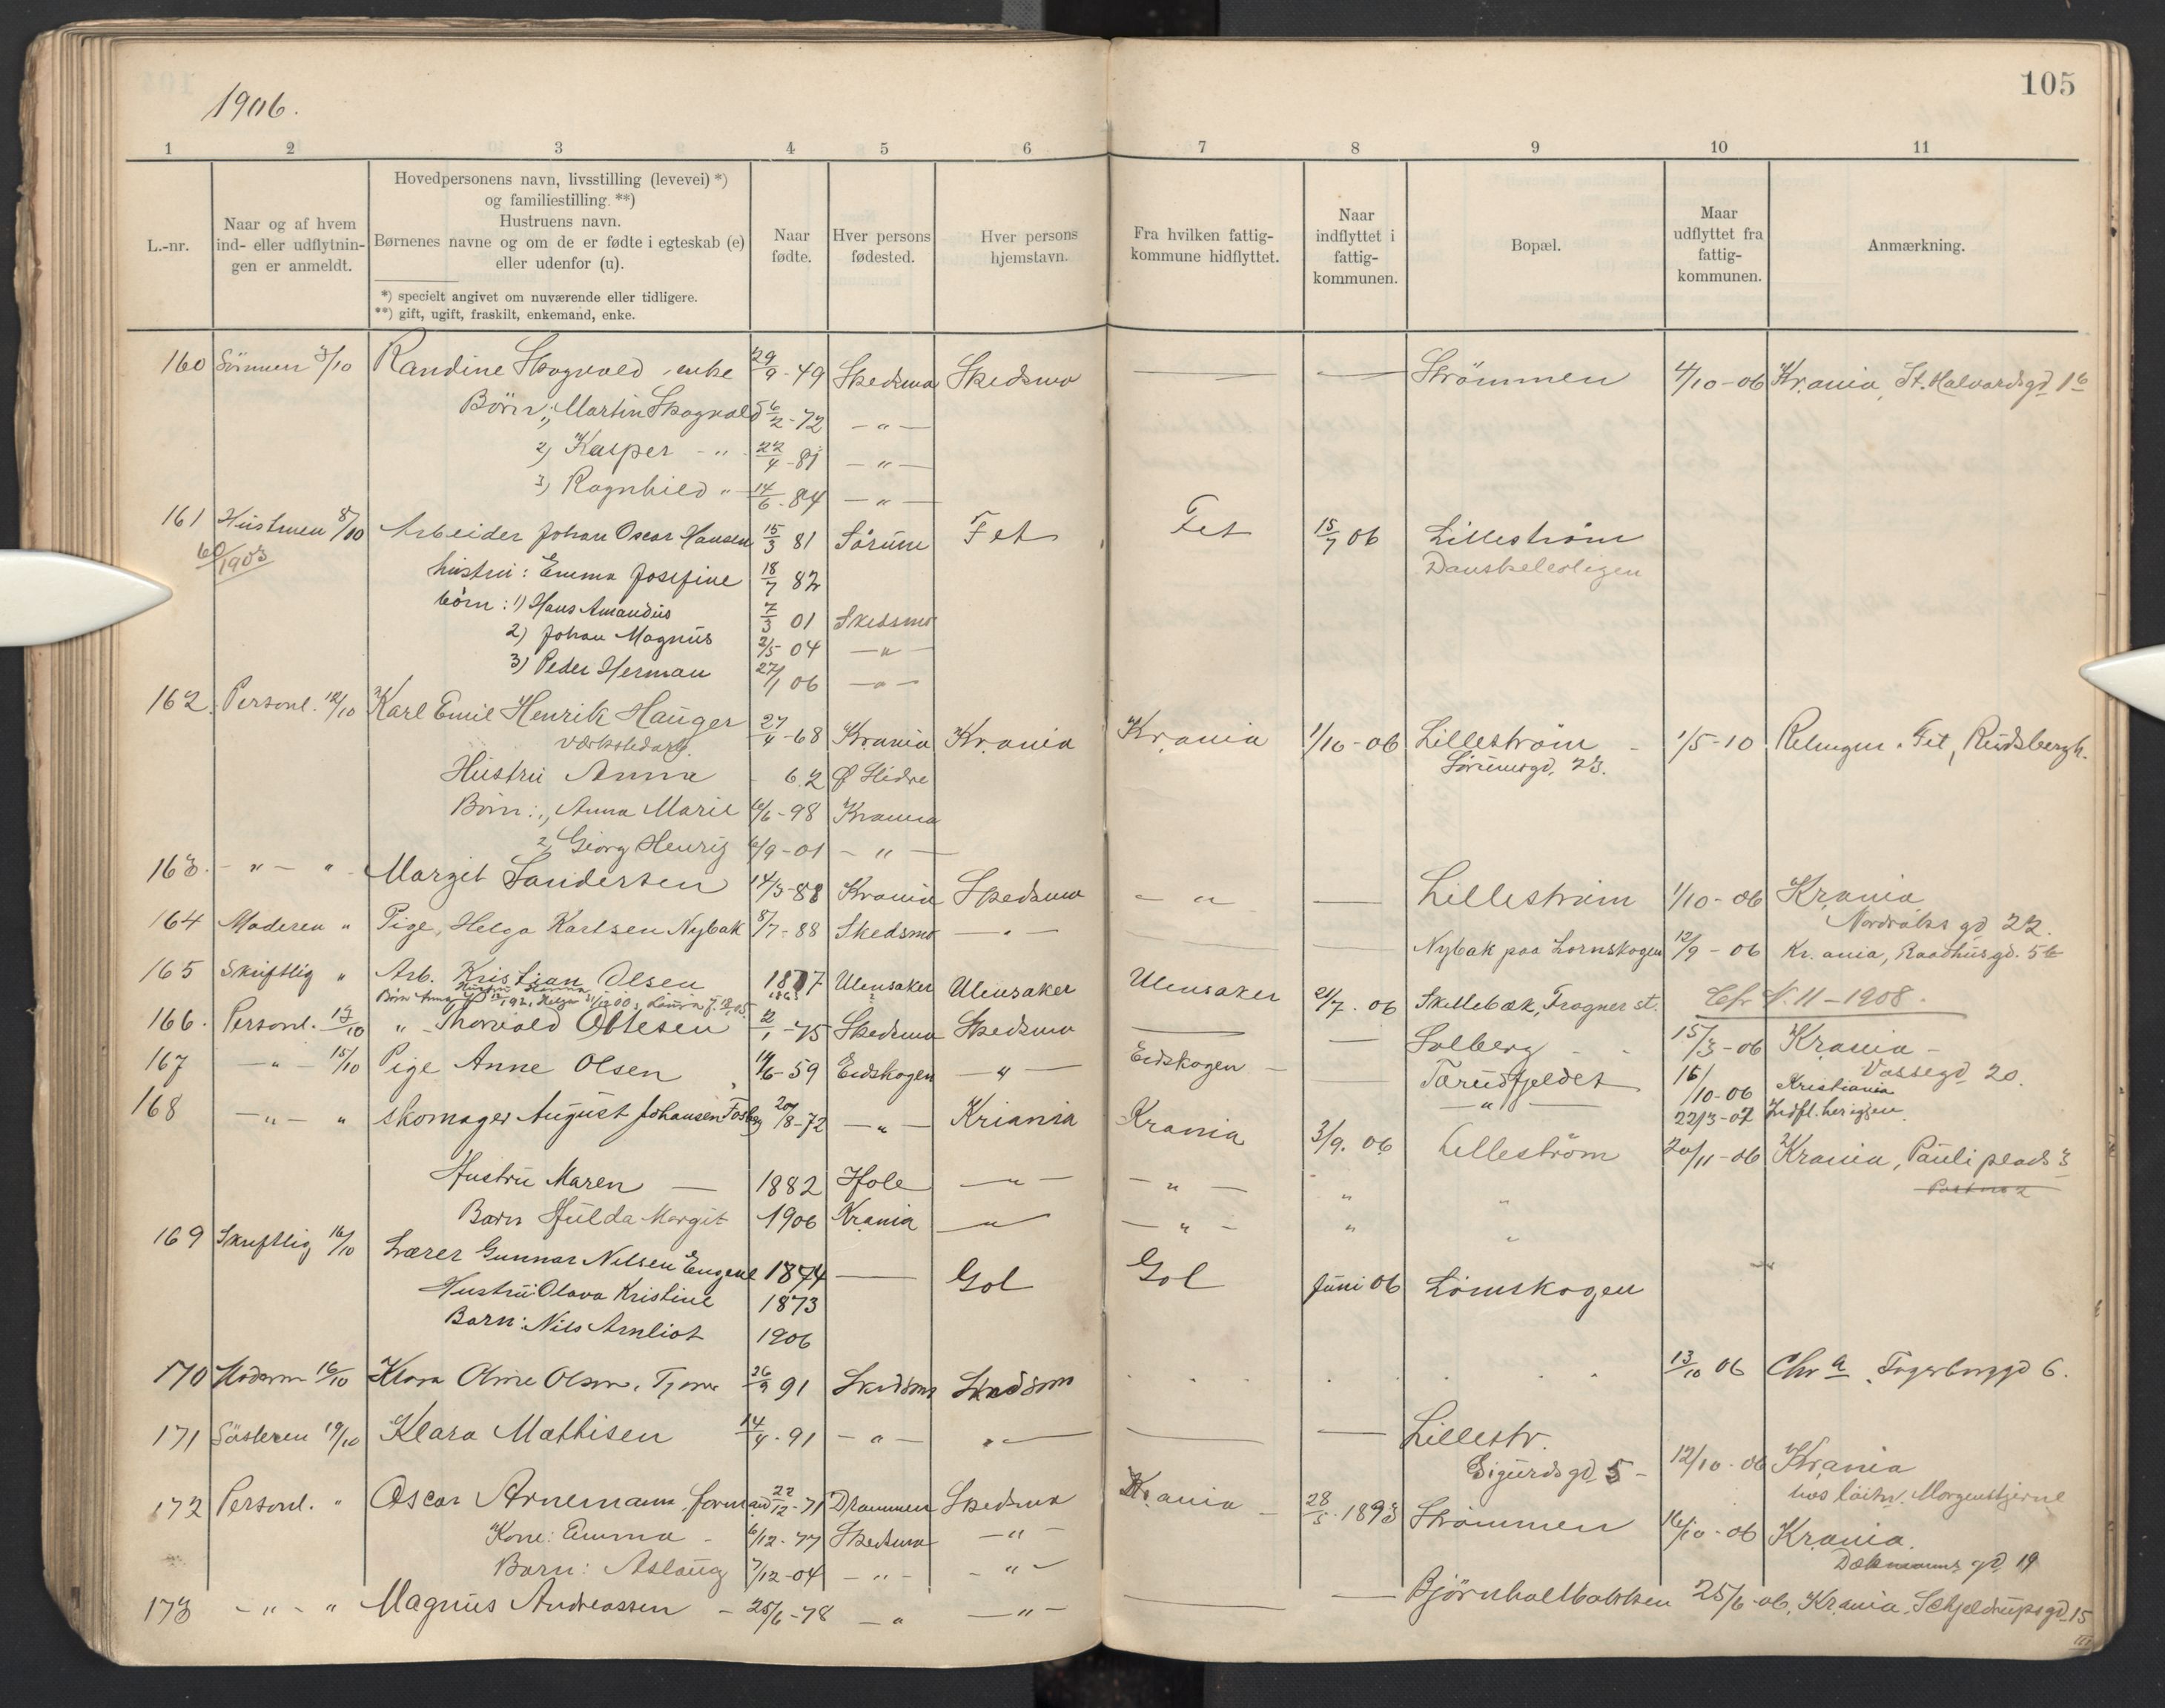 1906.
105
1 2 3 4 5 6 7 8 9 10 11
L.-nr.
Naar og af hvem
ind- eller udflytnin-
gen er anmeldt.
Hovedpersonens navn, livsstilling (levevei) *)
og familiestilling. **)
Hustruens navn.
Børnenes navne og om de er fødte i egteskab (e)
eller udenfor (u).
*) specielt angivet om nuværende eller tidligere.
**) gift, ugift, fraskilt, enkemand, enke.
Naar
fødte.
Hver persons
fødested.
Hver persons
hjemstavn.
Fra hvilken fattig-
kommune hidflyttet.
Naar
indflyttet i
fattig-
kommunen.
Bopæl.
Maar
udflyttet fra
fattig-
kommunen.
Anmærkning.
160 Sönnen 3/10 Randine Skogvold, enke 29/9-49 Skedsmo Skedsmo — — Strömmen 4/10-06 Kr.ania, St. Halvardsgd 16
Börn: 1) Martin Skogvold 6/2-72 -"-
2) Kasper -"- 22/4-81 -"-
3) Ragnhild " 14/6-84 -"-
161 Hustruen 8/10 Arbeider Johan Oscar Hansen 15/3 81 Sörum Fet Fet 15/7 06 Lilleström
60/1903 hustru: Emma Josefine 18/7 82
börn: 1) Hans Amandus 7/3 01 Skedsmo
2) Johan Magnus 2/5 04 -"-
3) Peder Herman 27/1 06 -"-
162. Personl. 12/10 Karl Emil Henrik Hauger 27/4-68 Kr.ania Kr.ania Kr.ania 1/10-06 Lilleström 1/5-10 Relingen, Fet, Rudsbergh.
Værkstedarb. Sörumsgd. 23.
Hustru Anna - 62 Ø Slidre
Börn: 1, Anna Marie 6/6-98 Krania
2, Georg Henrig 6/9-01 -"-
163. -"- " Margit Sandersen 14/3-88 Krania Skedsmo -"- — Lilleström 1/10-06 Kr.ania
Nordraks gd 22.
164 Moderen " Pige, Helga Karlsen Nybak 8/7-88 Skedsmo -"- — Nybak paa Lørnskogen 12/9-06 Kr.ania, Raadhusgd. 5
165 Skriftlig " Arb. Kristian Olsen 1877 Ulensaker Ulensaker Ulensaker 21/7.06 Skillebæk, Frogner st. Cfr N. 11-1908.
166. Personl. 13/10 " Thorvald Ottesen 2/1-75 Skedsmo Skedsmo — — Solberg 15/3-06 Kr.ania -
Vossegd 20.
167 -"- 15/10 Pige Anne Olsen 14/6-59 Eidskogen -"- Eidskogen — Tærudfjeldet 15/10-06 Kristiania
-"- 22/3-07 Indfl. her igjen.
168 -"- " skomager August Johansen 20/8-72 -"- Kriania Krania 3/9.06 Lilleström 20/11-06 Krania, Pauli plads 3
Hustru Maren — 1882 Hole -"- -"- " "
Barn Hulda Margit 1906 Krania -"- -"- " "
169 Skriftlig 16/10 Lærer Gunnar Nilsen Engene 1874 — Gol Gol Juni 06 Lörnskogen
Hustru: Olava Kristine 1873
Barn: Nils Arnliot 1906
170 Moderen 16/10 Klara Oline Olsen, Tjener 26/9 91 Skedsmo Skedsmo . . . . 13/10 06 Chr a. Fagerborggd 6.
171 Søsteren 19/10 Klara Mathisen 14/4.91 -"- "- — — Lillestr.
Sigurdsgd. 5 - 12/10-06 Kr.ania
hos löitn. Morgenstjerne
172 Personl. " Oscar Arnemann, formand 22/12-71 Drammen Skedsmo Kr.ania - 28/5-1893 Strömmen 16/10-06 Kr.ania.
Kone: Emma - 6/12-77 Skedsmo -"- Dækmanns gd 19
Barn: Aslaug 7/12-04 -"- -"-
173 -"- " Magnus Andreassen - 25/6-78 -" -"- — — Björnholtbakken 25/6-06, Kr.ania, Schjeldrupsgd 15
III